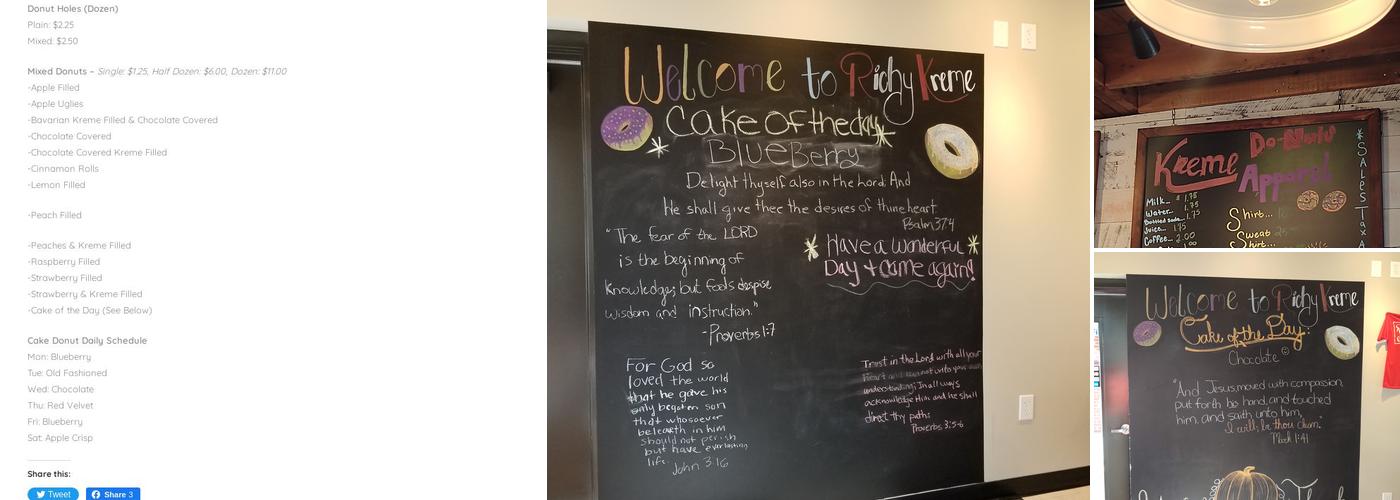 Donut Holes (Dozen)
Plain: $2.25
Mixed: $2.50
Mixed Donuts – Single: $1.25, Half Dozen: $6.00, Dozen: $11.00
-Apple Filled
-Apple Uglies
-Bavarian Kreme Filled & Chocolate Covered
-Chocolate Covered
-Chocolate Covered Kreme Filled
-Cinnamon Rolls
-Lemon Filled
-Peach Filled
-Peaches & Kreme Filled
-Raspberry Filled
-Strawberry Filled
-Strawberry & Kreme Filled
-Cake of the Day (See Below)
Cake Donut Daily Schedule
Mon: Blueberry
Tue: Old Fashioned
Wed: Chocolate
Thu: Red Velvet
Fri: Blueberry
Sat: Apple Crisp
Share this:
Tweet
Share 3
Welcome to Richy Kreme
Cake of the day
BlueBerry
Delight thyself also in the Lord; And
He shall give thee the desires of thine heart
Psalm 37:4
"The fear of the LORD
is the beginning of
Knowledge; but fools despise
wisdom and instruction."
-Proverbs 1:7
Have a Wonderful
Day + come again!
For God so
loved the world
that he gave his
only begoten son
that whosoever
beleaeth in him
should not perish
but have everlasting
life. John 3:16
Trust in the Lord with all your
heart and lean not unto your own
understanding; In all ways
acknowledge Him and he shall
direct thy paths:
Proverbs 3:5-6
Kreme
Do-Nuts
Apparel
Milk... $1.75
Water... 1.75
Bottled soda... 1.75
Juice... 1.75
Coffee... 2.00
Shirt...
Sweat
Shirt...
*SALES TAX A
Welcome to Richy Kreme
Cake of the Day:
Chocolate
"And Jesus, moved with compassion,
put forth he hand, and touched
him, and saith unto him,
I will; be thou clean."
Mark 1:41